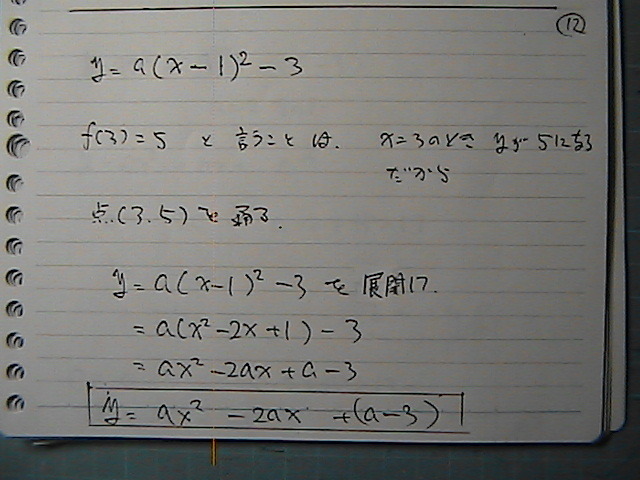 ⑫
y = a(x-1)² - 3
f(3) = 5 と 言うことは. x=3のとき yが 5になる
だから
点.(3.5)を 通る.
y = a(x-1)² - 3 を 展開は.
= a(x² - 2x + 1) - 3
= ax² - 2ax + a - 3
y = ax² - 2ax + (a-3)